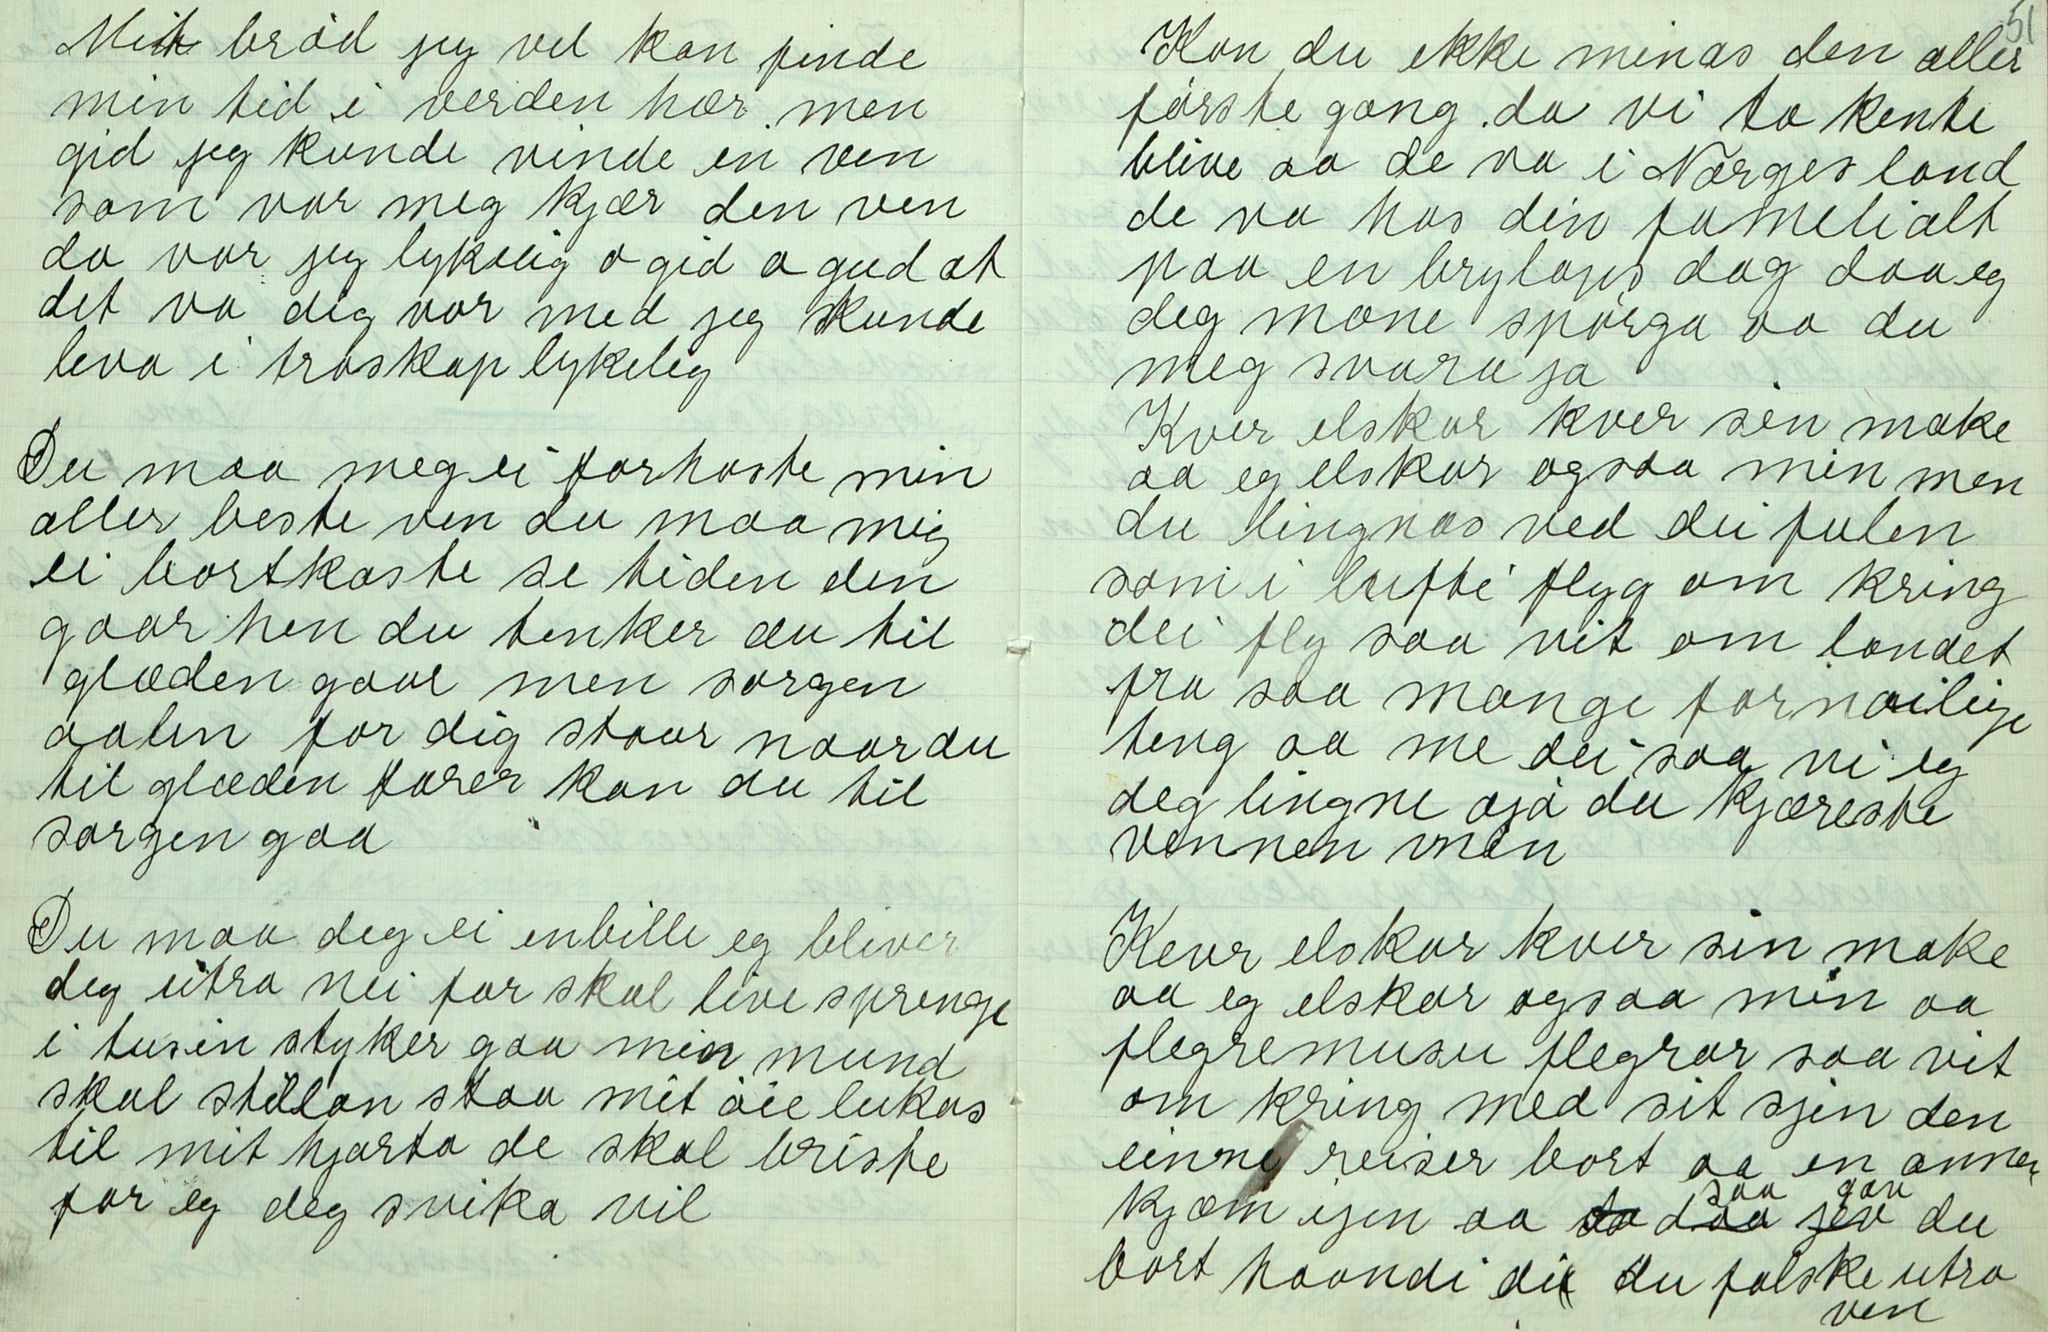 Mit bröd jeg vel kan finde
min tid i verden hær men
gid jeg kunde vinde en ven
som var meg kjær den ven
da var jeg lykelig o gid o gud at
det va dig var med jeg skunde
leva i troskap lykeleg
Du maa meg ei forhaste min
aller beste ven du maa mig
ei bortkaste se tiden den
gaar hen du tenker du til
glæden gaar men sorgen
aalen for dig staar naar du
til glæden farer kan du til
sorgen gaa
Du maa deg ei enbille eg bliver
deg utra nei før skal live sprenge
i tusin styker gaa min mund
skal stillan staa mit öie lukas
til mit hjarta de skal briste
før eg deg svika vil
51
Kan du ikke minas den aller
förste gang da vi to kente
blive aa de va i Nørges land
de va hos din famelialt
paa en brylaps dag daa eg
deg mone spörga aa du
meg svara ja
Kver elskar kver sin make
aa eg elskar ogsaa min men
du lingnas ved dei fulen
som i lufti flyg om kring
dei flyg saa vit om landet
fra saa mange fornoilige
teng aa me dei saa vi eg
deg lingne ojå du kjæreste
vennen min
Kevr elskar kver sin make
aa eg elskar ogsaa min aa
flegremusu flegrar saa vit
om kring med sit sjin den
einne reiser bort aa en annen
saa gav
kjæm ijen aa daa du
bort haandi di du falske utro
ven